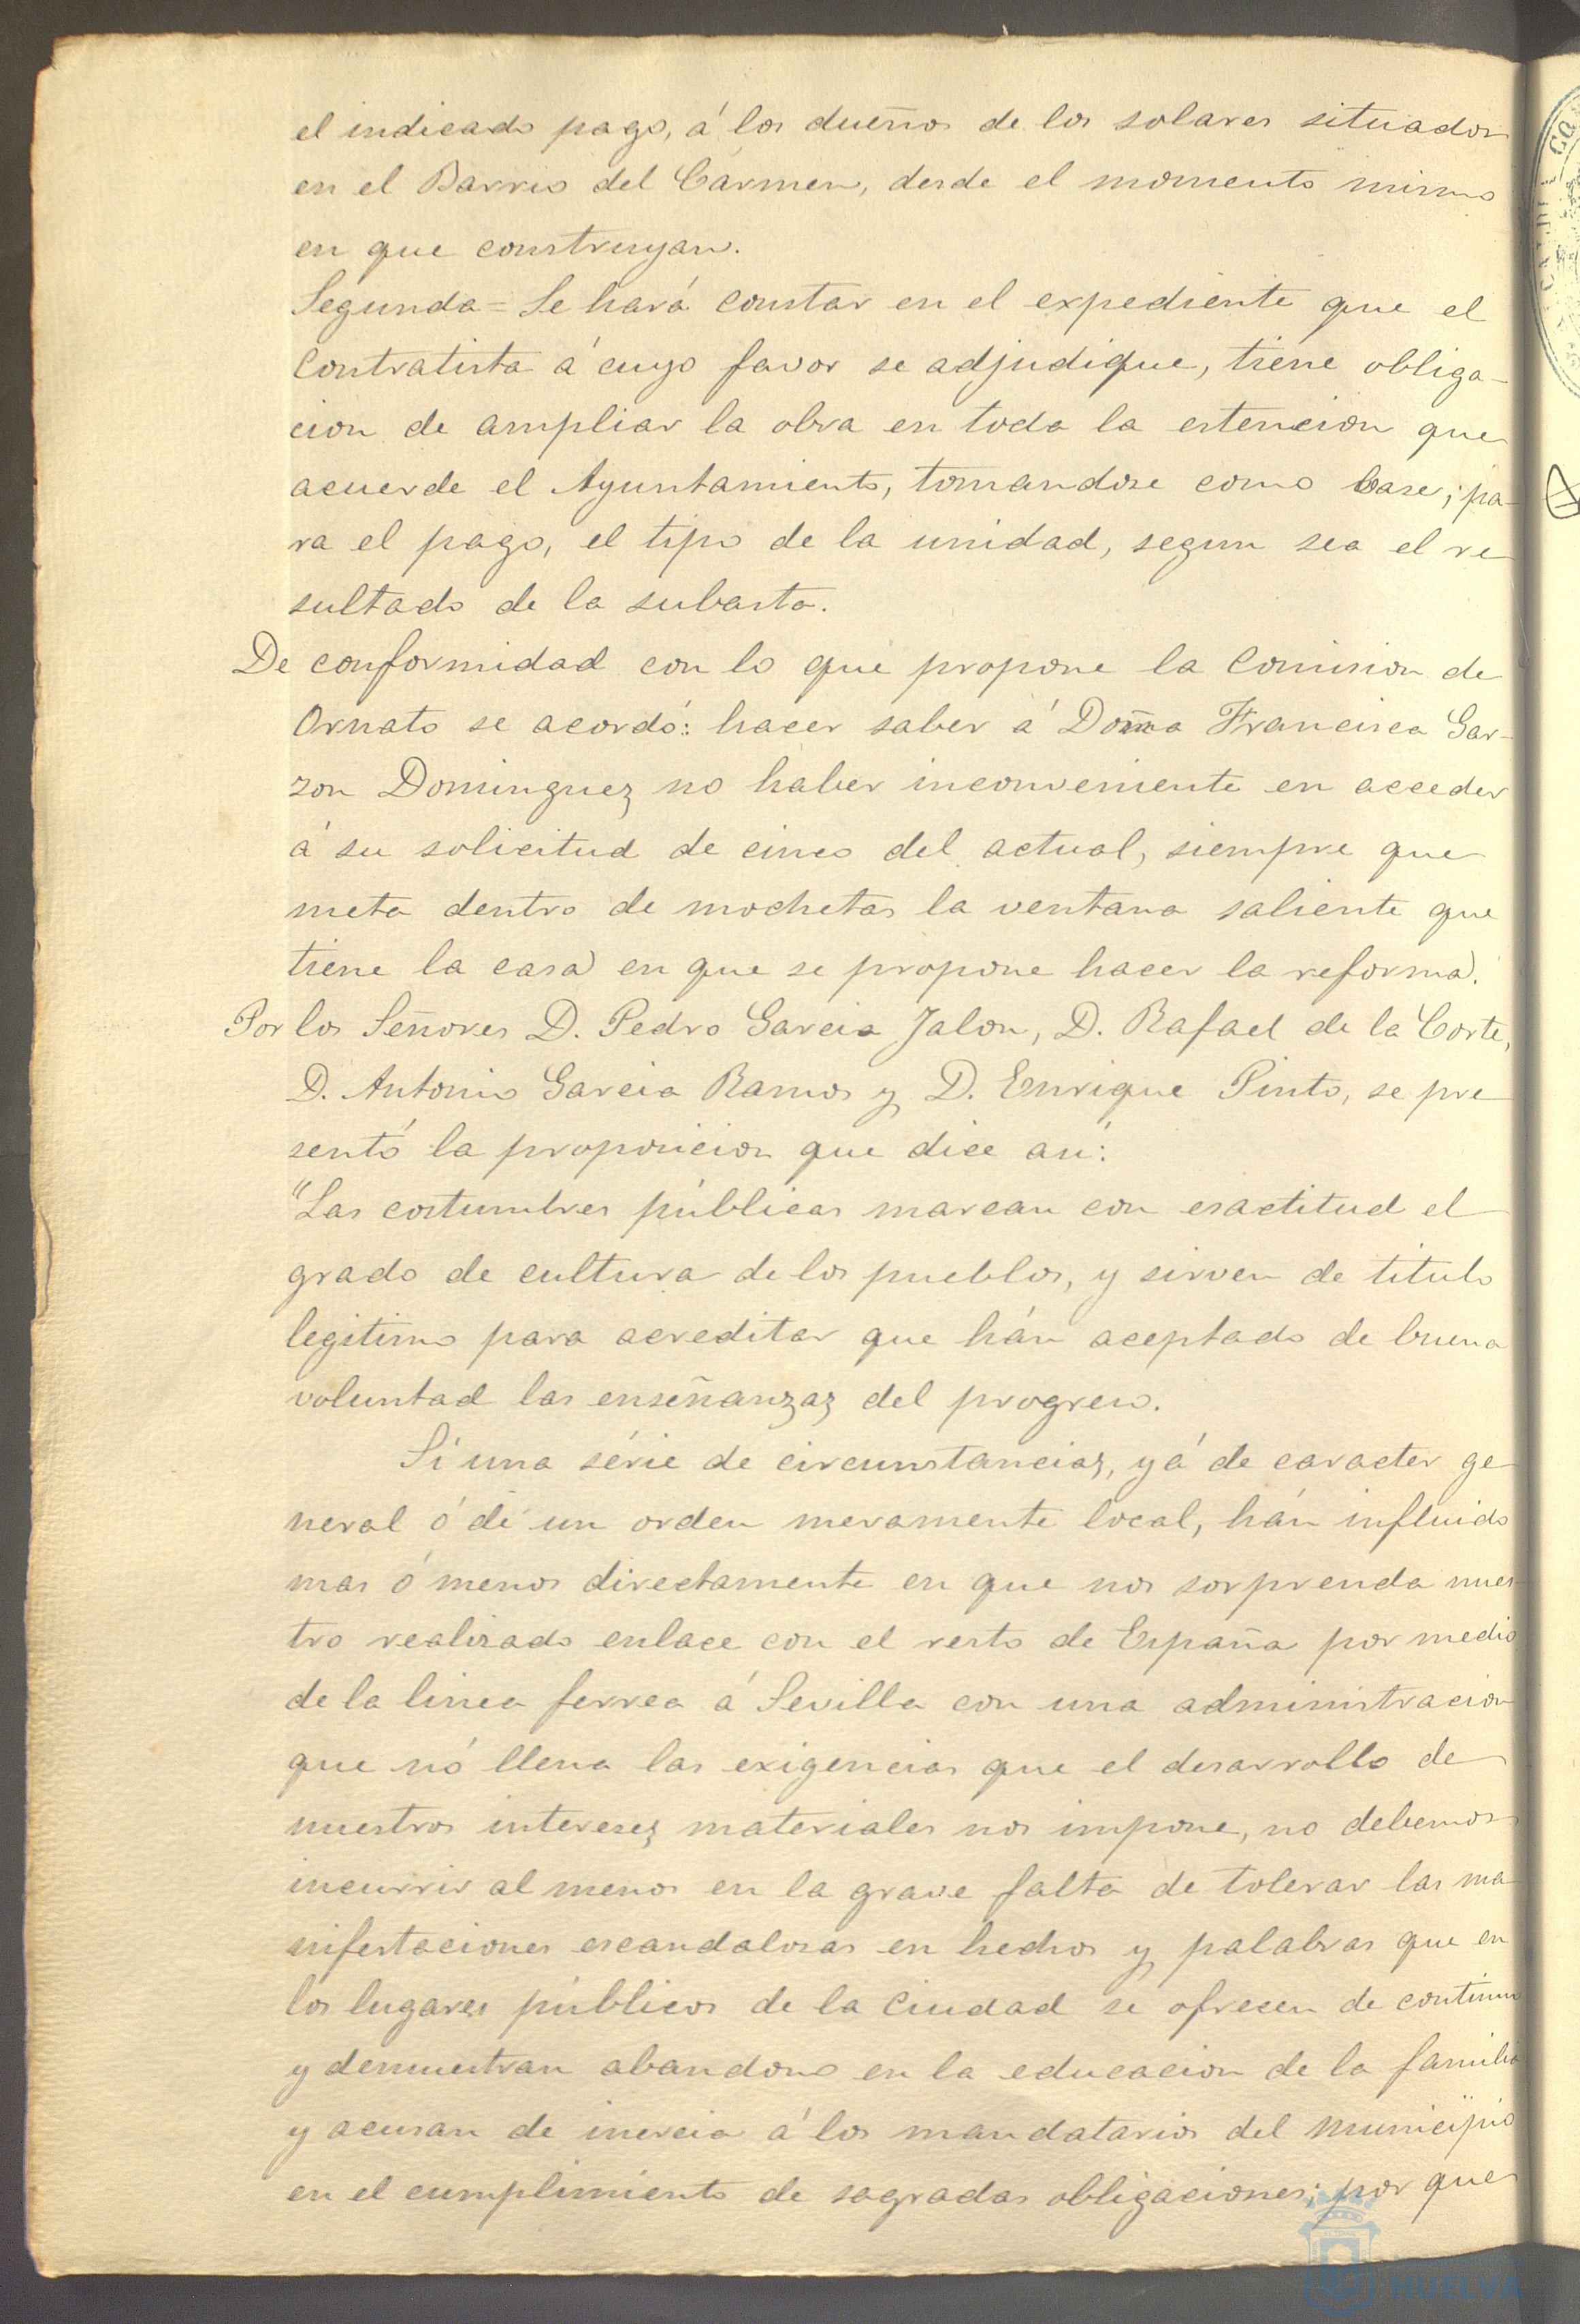 el indicado pago, á los dueños de los solares situados
en el Barrio del Cármen, desde el momento mismo
en que construyan.
Segunda = Se hará constar en el expediente que el
Contratista á cuyo favor se adjudique, tiene obliga-
cion de ampliar la obra en toda la estencion que
acuerde el Ayuntamiento, tomandose como base, pa-
ra el pago, el tipo de la unidad, segun sea el re
sultado de la subasta.
De conformidad con lo que propone la Comision de
Ornato se acordó: hacer saber á Doña Francisca Gar-
zon Dominguez no haber inconveniente en acceder
á su solicitud de cinco del actual, siempre que
meta dentro de mochetas la ventana saliente que
tiene la casa en que se propone hacer la reforma.
Por los Señores D. Pedro Garcia Jalon, D. Rafael de la Corte,
D. Antonio Garcia Ramos y D. Enrique Pinto, se pre
sentó la proposicion que dice asi:
"Las costumbres públicas marcan con esactitud el
grado de cultura de los pueblos, y sirven de titulo
legitimo para acreditar que hán aceptado de buena
voluntad las enseñanzaz del progreso.
Si una série de circunstancias, yá de caracter ge
neral ó de un orden meramente local, hán influido
mas ó menos directamente en que nos sorprenda nues
tro realisado enlace con el resto de España por medio
de la linea ferrea á Sevilla con una administracion
que nó llena las exigencias que el desarrollo de
nuestros intereses materiales nos impone, no debemos
incurrir al menos en la grave falta de tolerar las ma
nifestaciones escandalosas en hechos y palabras que en
los lugares públicos de la Ciudad se ofrecen de continuo
y demuestran abandono en la educacion de la familia
y acusan de inercia á los mandatarios del Municipio
en el cumplimiento de sagradas obligaciones; por que
HUELVA